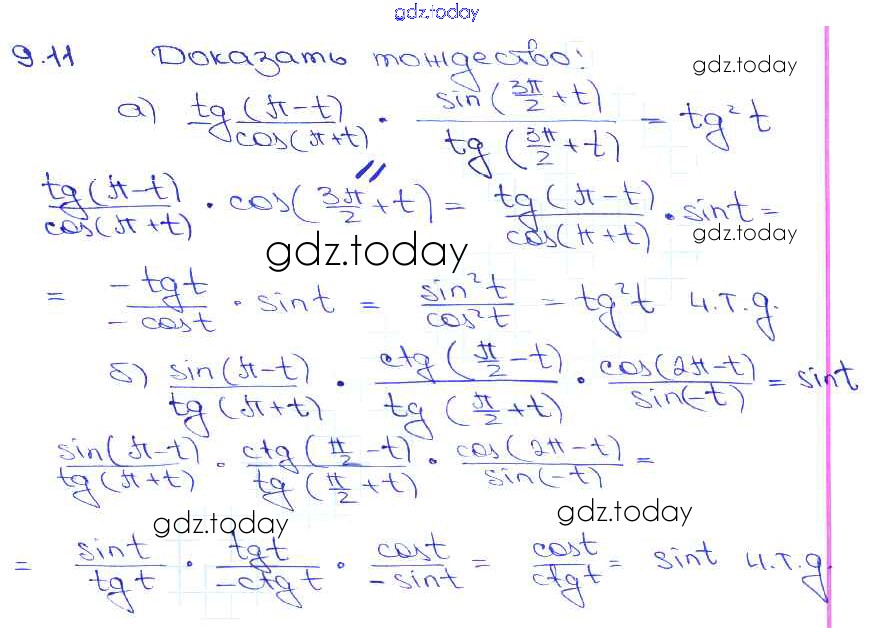 gdz.today
9.11 Доказать тождество:
gdz.today
а) tg(π-t)/cos(π+t) · sin(3π/2+t)/tg(3π/2+t) = tg²t
tg(π-t)/cos(π+t) · cos(3π/2+t) = tg(π-t)/cos(π+t) · sint =
gdz.today
gdz.today
= -tgt/-cost · sint = sin²t/cos²t = tg²t ч.т.д.
б) sin(π-t)/tg(π+t) · ctg(π/2-t)/tg(π/2+t) · cos(2π-t)/sin(-t) = sint
sin(π-t)/tg(π+t) · ctg(π/2-t)/tg(π/2+t) · cos(2π-t)/sin(-t) =
gdz.today
gdz.today
= sint/tgt · tgt/-ctgt · cost/-sint = cost/ctgt = sint ч.т.д.